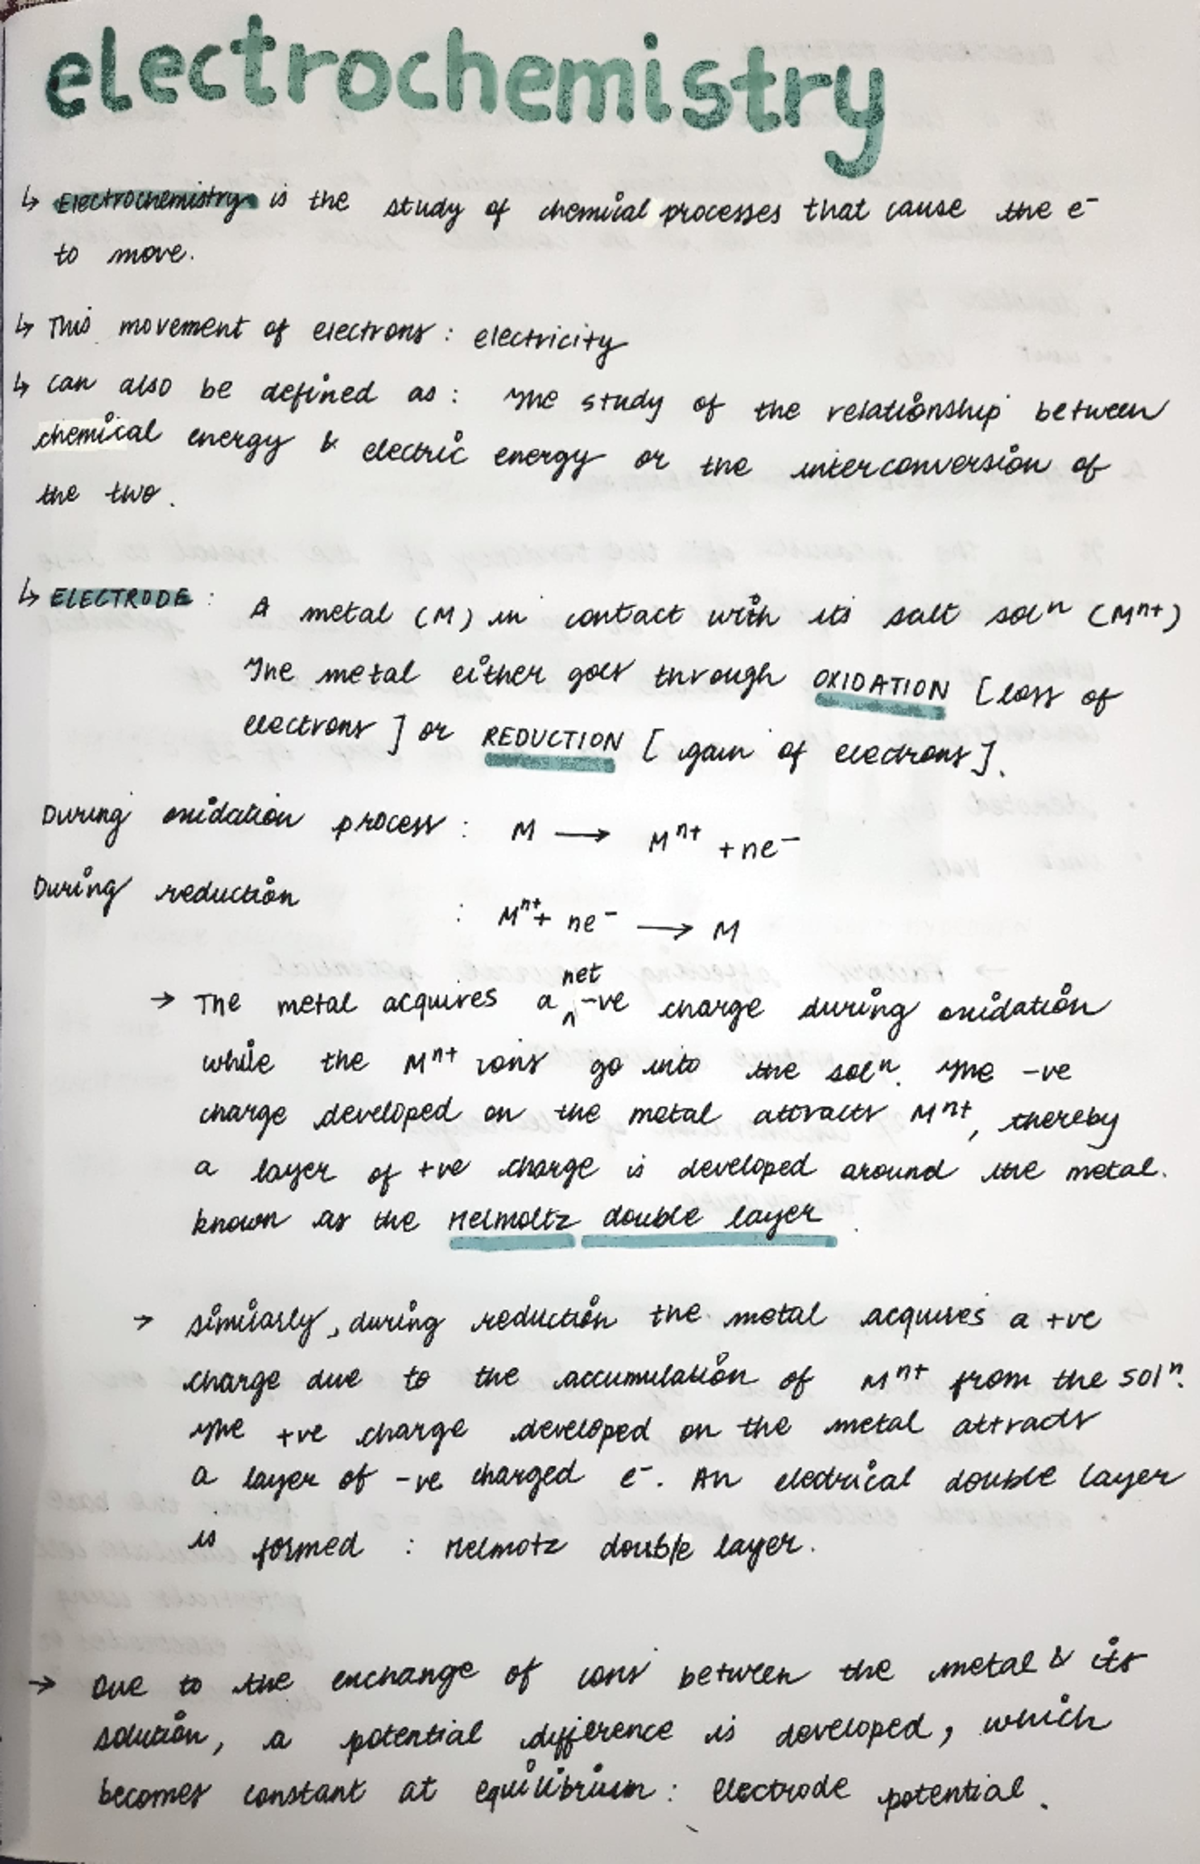 electrochemistry
↳ Electrochemistry is the study of chemical processes that cause the e⁻
to move.
↳ This movement of electrons : electricity
↳ can also be defined as : The study of the relationship between
chemical energy & electric energy or the interconversion of
the two.
↳ ELECTRODE : A metal (M) in contact with its salt solⁿ (Mⁿ⁺)
The metal either goes through OXIDATION [loss of
electrons] or REDUCTION [gain of electrons].
During oxidation process : M ⟶ Mⁿ⁺ + ne⁻
During reduction : Mⁿ⁺ + ne⁻ ⟶ M
→ The metal acquires a net -ve charge during oxidation
while the Mⁿ⁺ ions go into the solⁿ. The -ve
charge developed on the metal attracts Mⁿ⁺, thereby
a layer of +ve charge is developed around the metal.
known as the Helmoltz double layer
→ similarly, during reduction the metal acquires a +ve
charge due to the accumulation of Mⁿ⁺ from the solⁿ.
The +ve charge developed on the metal attracts
a layer of -ve charged e⁻. An electrical double layer
is formed : Helmotz double layer.
→ Due to the exchange of ions between the metal & its
solution, a potential difference is developed, which
becomes constant at equilibrium : electrode potential.